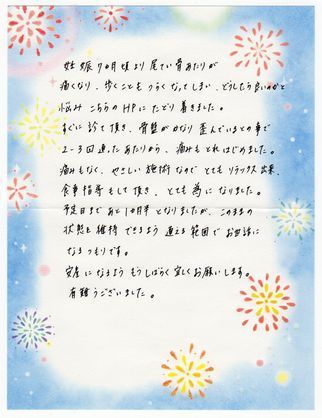 妊娠7ヶ月頃より尾てい骨あたりが
痛くなり、歩くこともつらくなってしまい、どうしたら良いのかと
悩み こちらのHPにたどり着きました。
すぐに診て頂き、骨盤がかなり歪んでいるとの事で
2～3回通ったあたりから、痛みもとれはじめました。
痛みもなく、やさしい施術なのでとてもリラックス出来、
食事指導もして頂き、とても為になりました。
予定日まであと1ヶ月半となりましたが、このままの
状態を維持できるよう 通える範囲でお世話に
なるつもりです。
安産になるよう もうしばらく宜しくお願いします。
有難うございました。